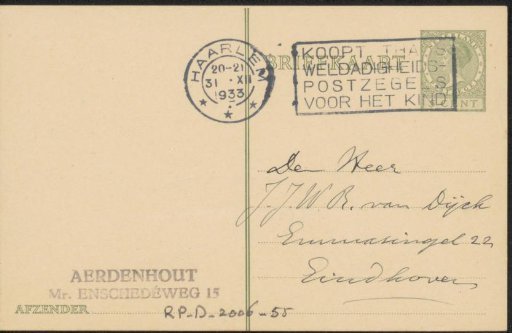 HAARLEM
20-21
31 XII
1933
BRIEFKAART
KOOPT THANS
WELDADIGHEIDS
POSTZEGELS
VOOR HET KIND
CENT
Den Heer
J.J.W.R. van Dijck
Emmasingel 22
Eindhoven
AERDENHOUT
Mr. ENSCHEDÉWEG 15
AFZENDER
RP-D-2006-55